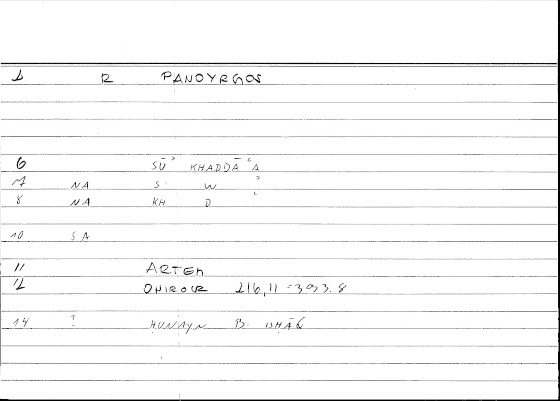 1 R PANOYRGOS
6 SŪʾ KHADDĀʿA
7 NA S W ʾ
8 NA KH D ʿ
10 SA
11 ARTEM
12 ONIROCR 216,11 = 393.8
14 ? ḤUNAYN B. ISḤĀQ